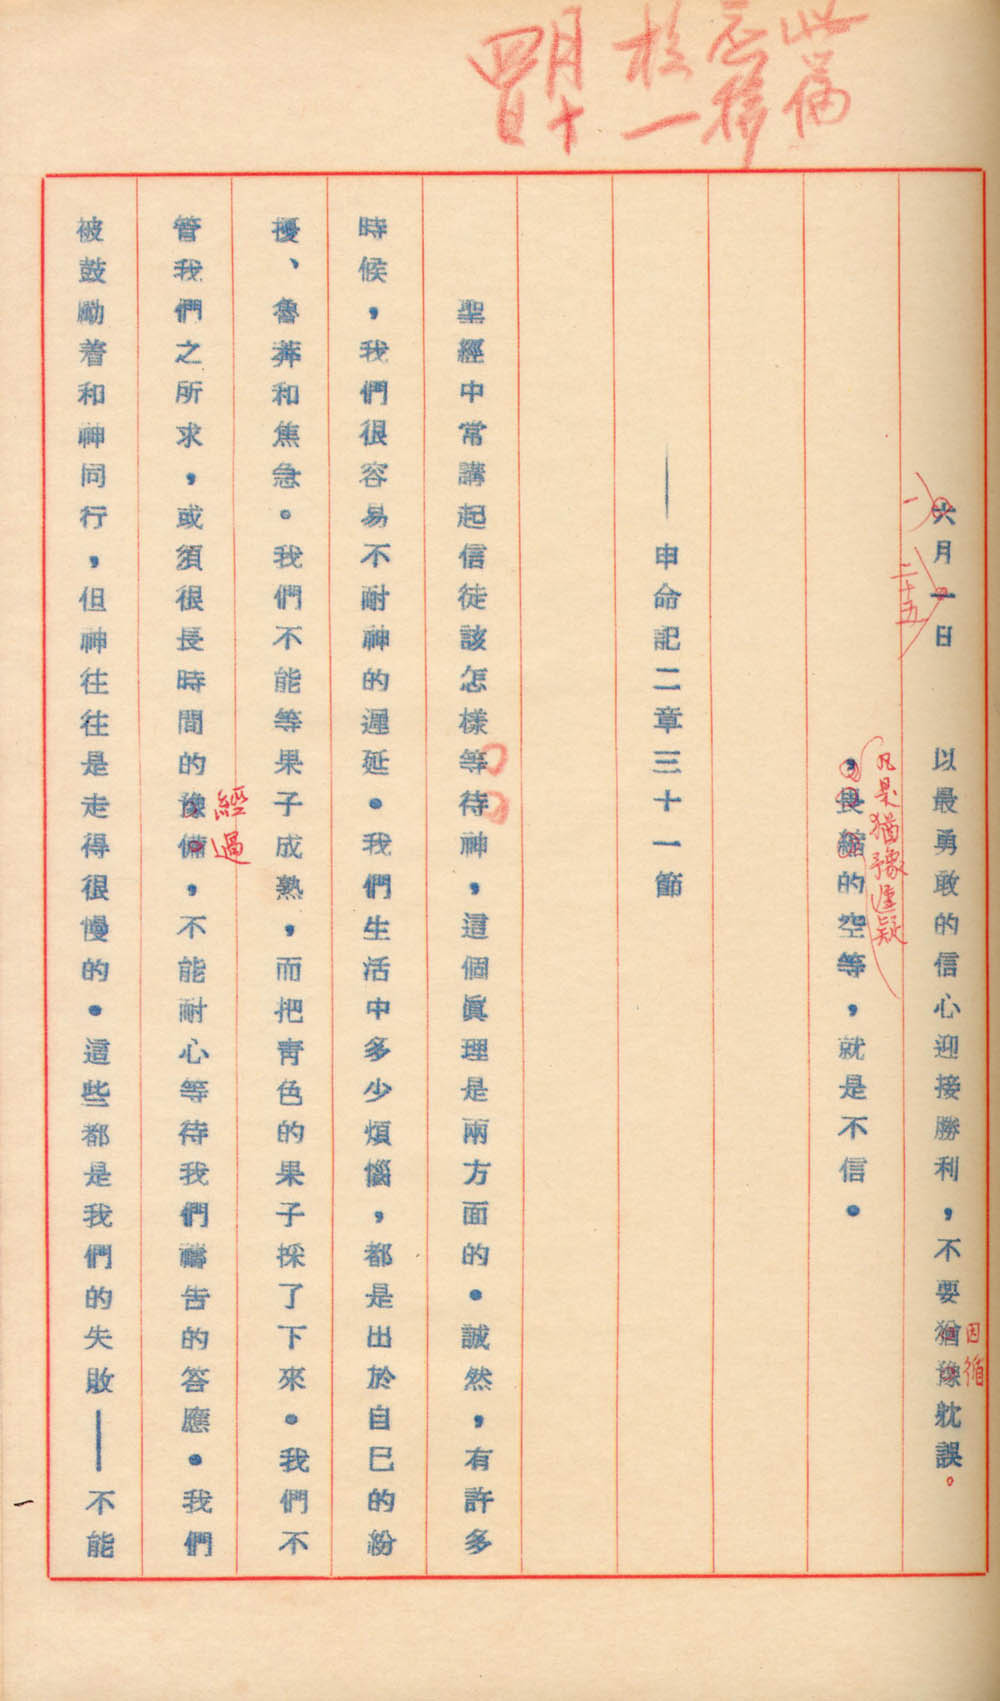 此稿
校一
月十
四日
六月一日　以最勇敢的信心迎接勝利，不要猶豫躭誤。
一
二十五
因循
，畏縮的空等，就是不信。
凡是猶豫遲疑
——申命記二章三十一節
聖經中常講起信徒該怎樣等待神，這個眞理是兩方面的。誠然，有許多
時候，我們很容易不耐神的遲延。我們生活中多少煩惱，都是出於自己的紛
擾、魯莽和焦急。我們不能等果子成熟，而把青色的果子採了下來。我們不
管我們之所求，或須很長時間的豫備，不能耐心等待我們禱吿的答應。我們
經過
被鼓勵着和神同行，但神往往是走得很慢的。這些都是我們的失敗——不能
一